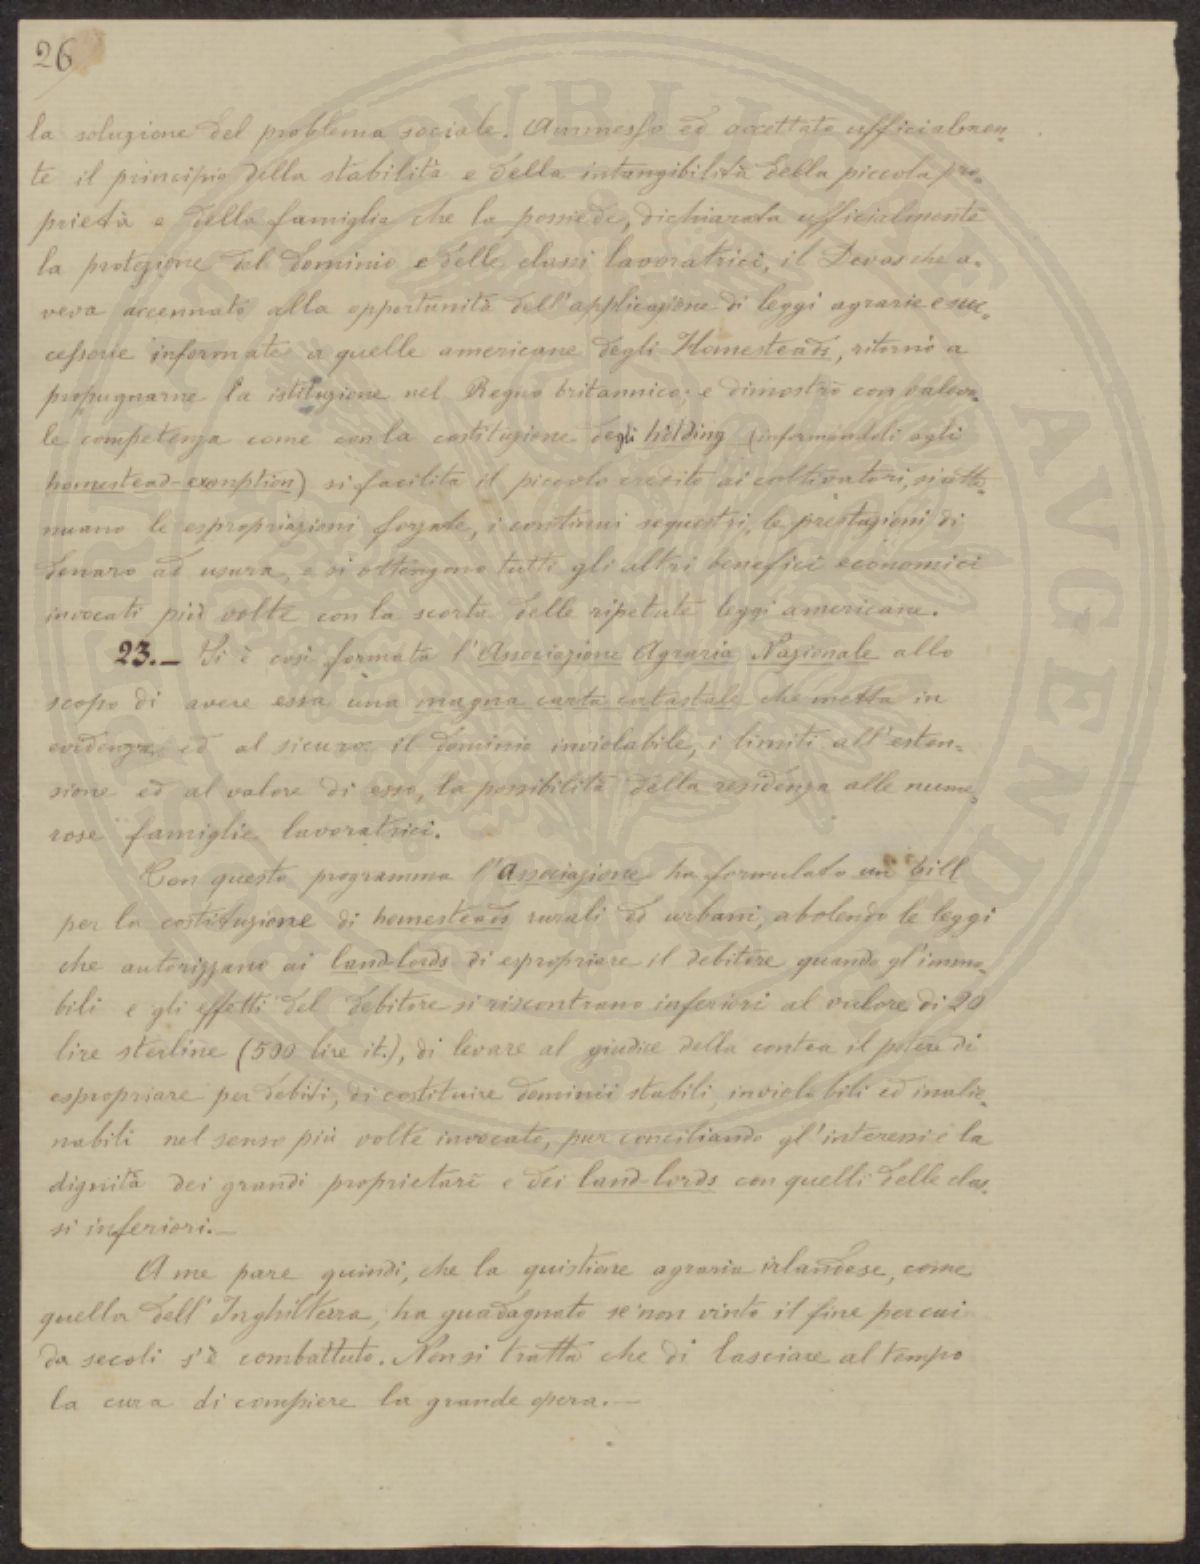 26
la soluzione del problema sociale. Ammesso ed accettato ufficialmen-
te il principio della stabilità e della intangibilità della piccola pro-
prietà e della famiglia che la possiede, dichiarata ufficialmente
la protezione del dominio e delle classi lavoratrici, il Devas che a-
veva accennato alla opportunità dell'applicazione di leggi agrarie e suc-
cessorie informate a quelle americane degli Homesteads, ritornò a
propugnarne la istituzione nel Regno britannico; e dimostrò con valevo-
le competenza come con la costituzione degli holding (informandoli agli
homestead-exemption) si facilita il piccolo credito ai coltivatori, si atte-
nuano le espropriazioni forzate, i continui sequestri, le prestazioni di
denaro ad usura, e si ottengono tutti gli altri benefici economici
invocati più volte con la scorta delle ripetute leggi americane.
23.— Si è così formata l'Associazione Agraria Nazionale allo
scopo di avere essa una magna carta catastale che metta in
evidenza ed al sicuro il dominio inviolabile, i limiti all'esten-
sione ed al valore di esso, la possibilità della residenza alle nume-
rose famiglie lavoratrici.
Con questo programma l'Associazione ha formulato un bill
per la costituzione di homesteads rurali ed urbani, abolendo le leggi
che autorizzano ai land-lords di espropriare il debitore quando gl'immo-
bili e gli effetti del debitore si riscontrano inferiori al valore di 20
lire sterline (500 lire it.), di levare al giudice della contea il potere di
espropriare per debiti, di costituire dominii stabili, inviolabili ed inalie-
nabili nel senso più volte invocato, pur conciliando gl'interessi e la
dignità dei grandi proprietarî e dei land-lords con quelli delle clas-
si inferiori.—
A me pare quindi, che la quistione agraria irlandese, come
quella dell'Inghilterra, ha guadagnato se non vinto il fine per cui
da secoli s'è combattuto. Non si tratta che di lasciare al tempo
la cura di compiere la grande opera.—
PVBLICAE
AVGENDAE